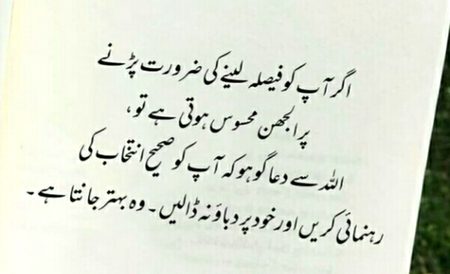 اگر آپ کو فیصلہ لینے کی ضرورت پڑنے
پر الجھن محسوس ہوتی ہے تو،
اللہ سے دعا گو ہو کہ آپ کو صحیح انتخاب کی
رہنمائی کریں اور خود پر دباؤ نہ ڈالیں۔ وہ بہتر جانتا ہے۔